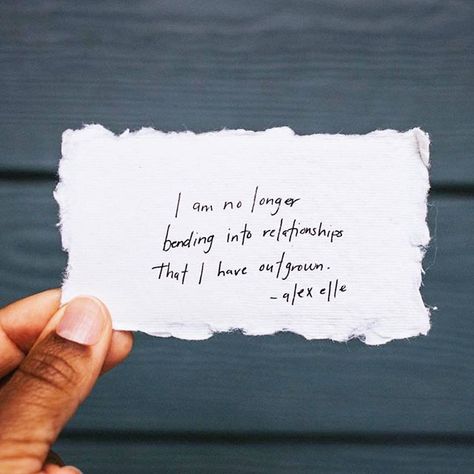 I am no longer
bending into relationships
that I have outgrown.
- alex elle